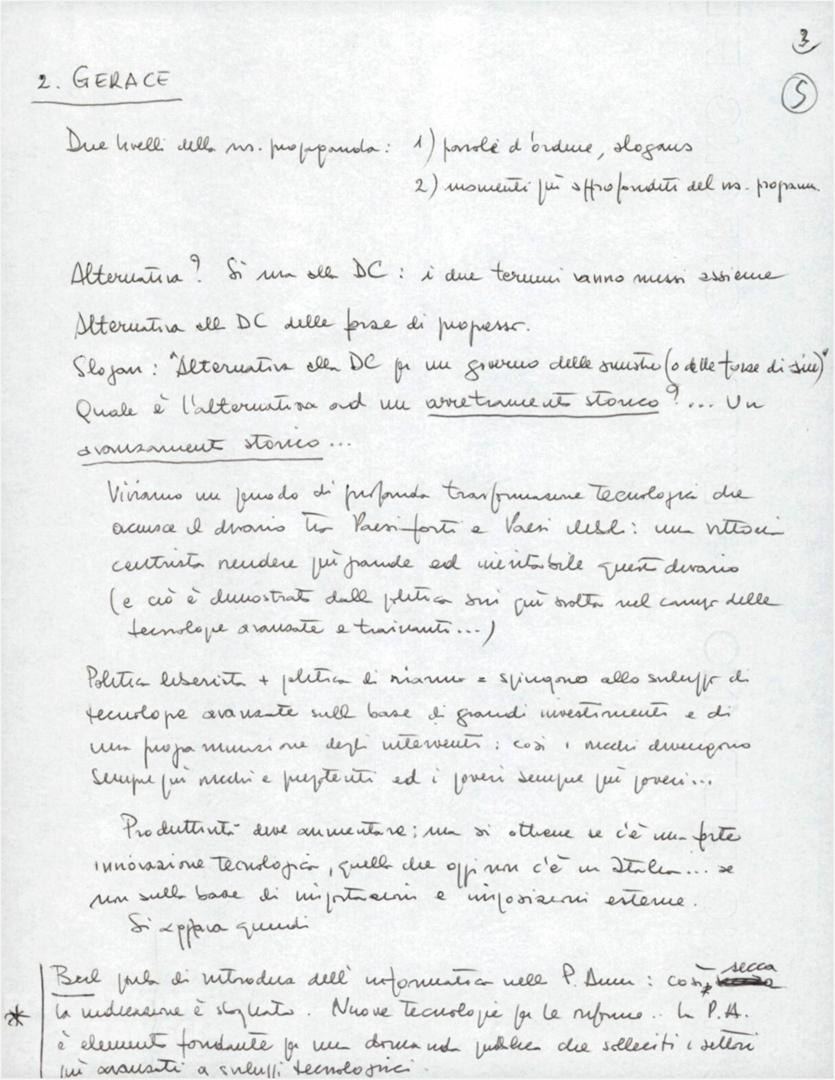 3
5
2. GERACE
Due livelli della ns. propaganda: 1) parole d'ordine, slogans
2) momenti più approfonditi del ns. programm.
Alternativa? Sì ma alla DC: i due termini vanno messi assieme
Alternativa alla DC delle forze di progresso.
Slogan: "Alternativa alla DC per un governo delle sinistre (o delle forze di sin)"
Quale è l'alternativa ad un arretramento storico?... Un
avanzamento storico...
Viviamo un periodo di profonda trasformazione tecnologica che
acuisce il divario tra Paesi forti e Paesi deboli: una vittoria
centrista rendere più grande ed inevitabile questo divario
(e ciò è dimostrato dalla politica sin qui svolta nel campo delle
tecnologie avanzate e trainanti...)
Politica liberista + politica di riarmo = spingono allo sviluppo di
tecnologie avanzate sulla base di grandi investimenti e di
una programmazione degli interventi: così i ricchi divengono
sempre più ricchi e prepotenti ed i poveri sempre più poveri...
Produttività deve aumentare; ma si ottiene se c'è una forte
innovazione tecnologica, quella che oggi non c'è in Italia... se
non sulla base di importazioni e imposizioni esterne.
Si quindi
parla di introdurre dell'informatica nella P. Amm: così secca
* la indicazione è sbagliata. Nuove tecnologie per le riforme.. La P.A.
è elemento fondante per una domanda pubblica che solleciti i settori
più avanzati a sviluppi tecnologici.